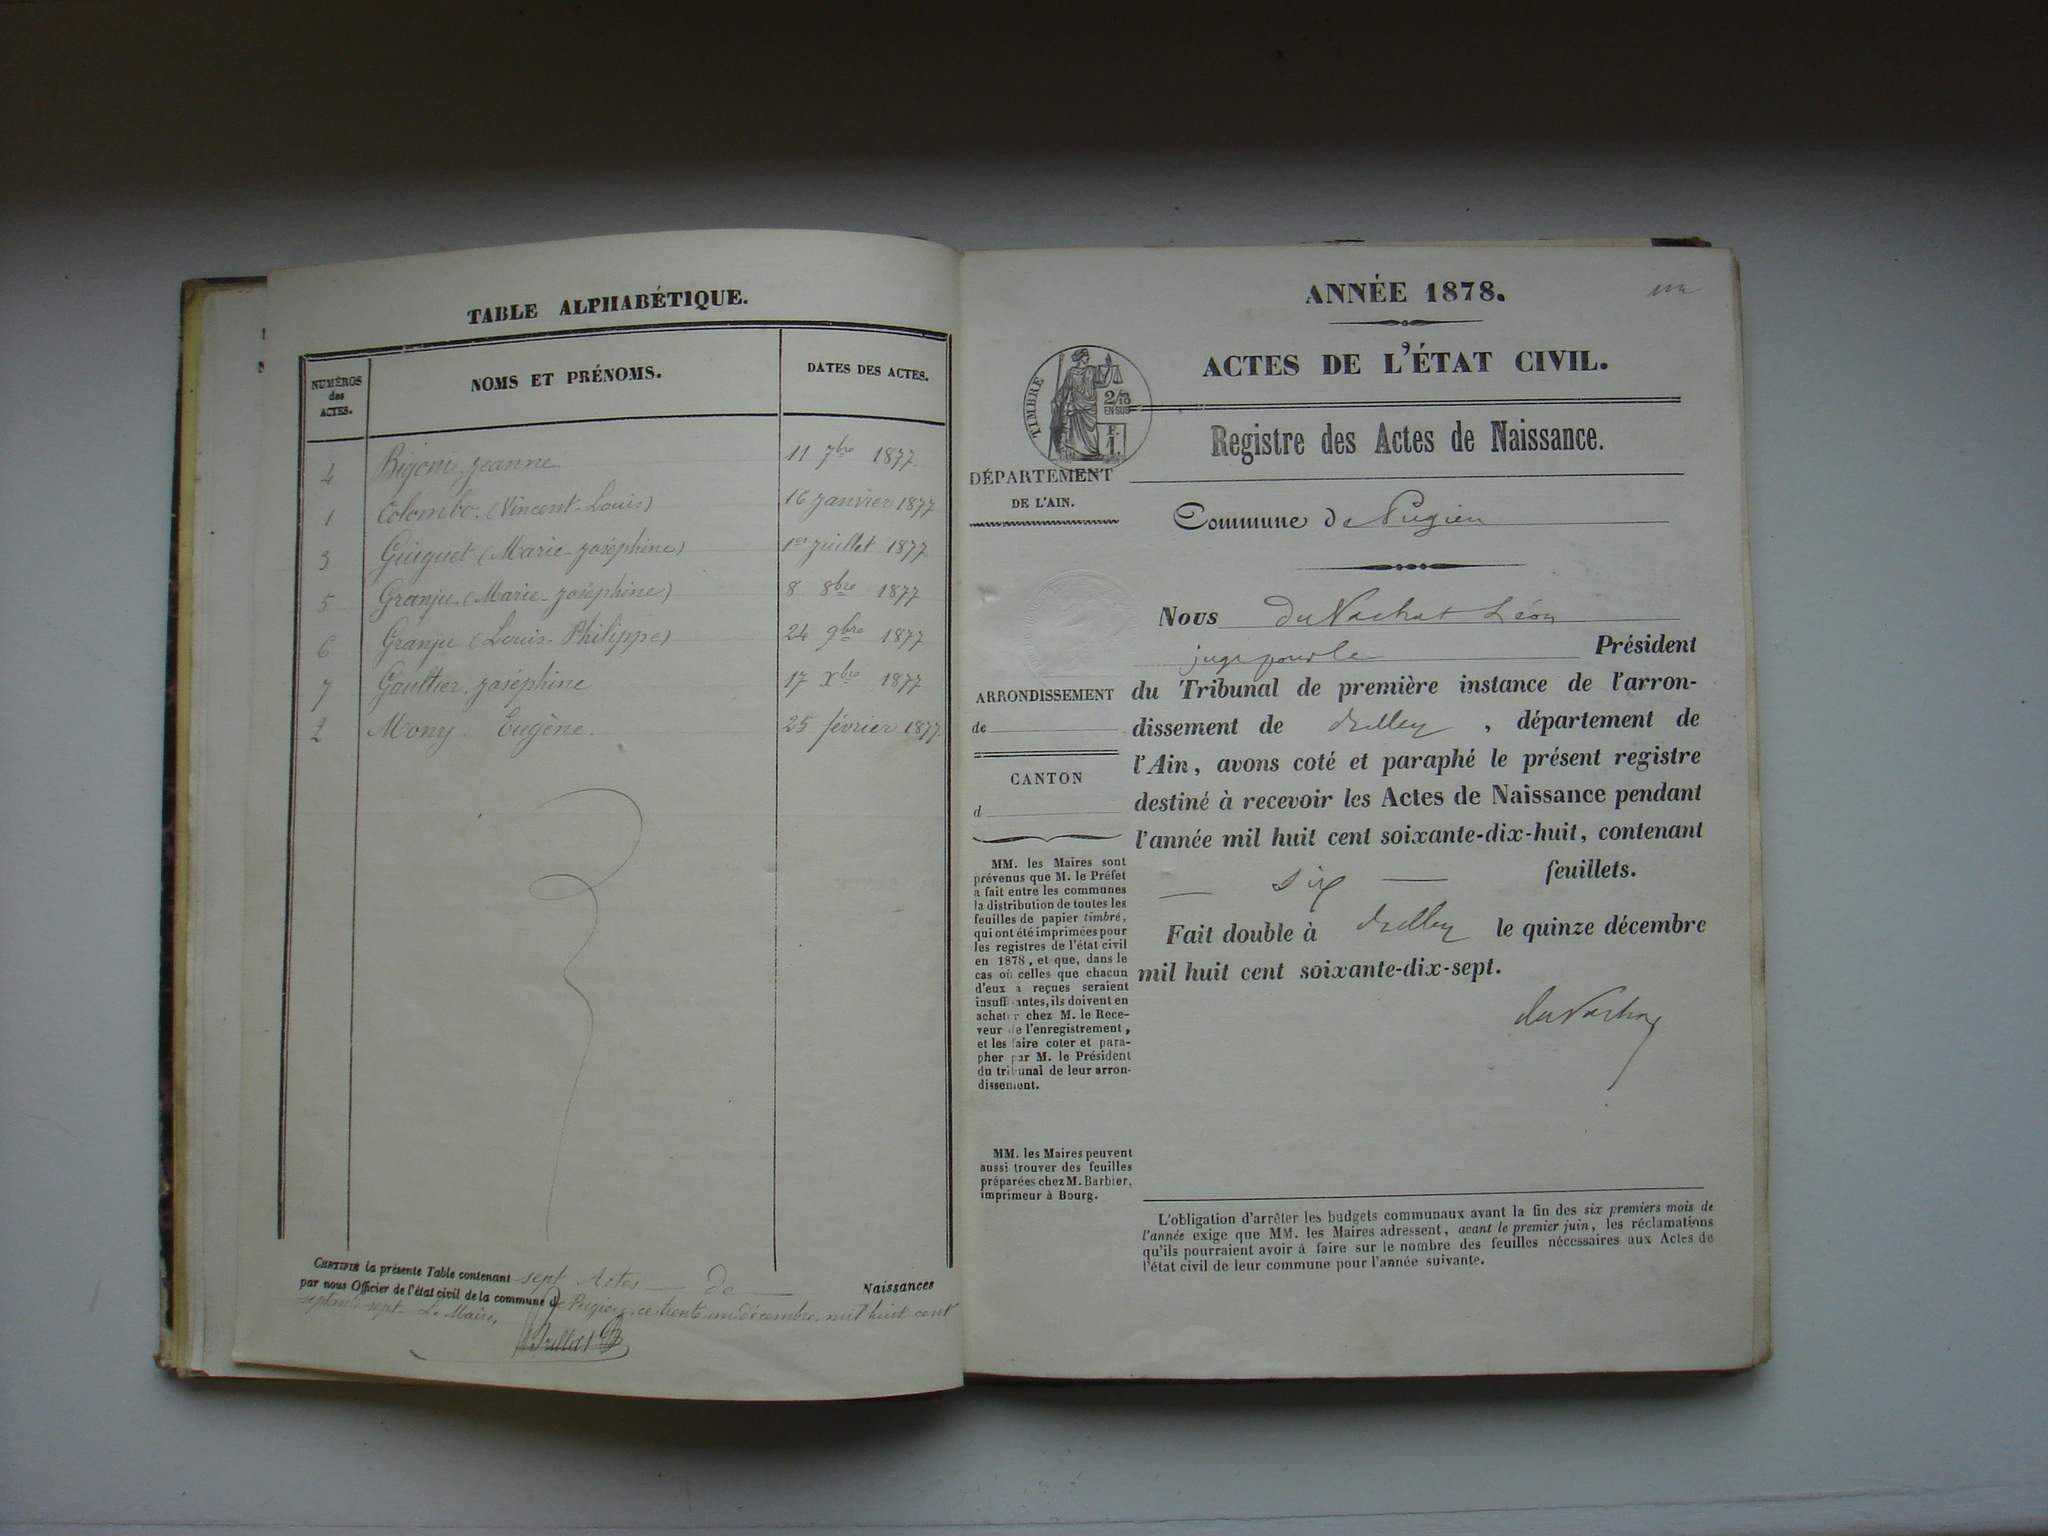 TABLE ALPHABÉTIQUE.
NUMÉROS des ACTES.
NOMS ET PRÉNOMS.
DATES DES ACTES.
4 Bigoni Jeanne 11 7bre 1877.
1 Colombo (Vincent-Louis) 16 janvier 1877
3 Guiguet (Marie Joséphine) 1er juillet 1877
5 Granju (Marie-Joséphine) 8 8bre 1877
6 Granju (Louis-Philippe) 24 9bre 1877
7 Gaultier Joséphine 17 Xbre 1877
2 Mony Eugène. 25 février 1877.
CERTIFIÉ la présente Table contenant sept Actes de Naissances
par nous Officier de l'état civil de la commune de Pugieu, ce trente un décembre mil huit cent
septante-sept. Le Maire,
ANNÉE 1878.
ACTES DE L'ÉTAT CIVIL.
TIMBRE
2/10
EN SUS
F.
1.
Registre des Actes de Naissance.
DÉPARTEMENT
DE L'AIN.
Commune de Pugieu
Nous du Vachat Léon
juge pour le Président
du Tribunal de première instance de l'arron-
dissement de Belley, département de
l'Ain, avons coté et paraphé le présent registre
destiné à recevoir les Actes de Naissance pendant
l'année mil huit cent soixante-dix-huit, contenant
— six — feuillets.
Fait double à Belley le quinze décembre
mil huit cent soixante-dix-sept.
du Vachat
ARRONDISSEMENT
de
CANTON
d
MM. les Maires sont
prévenus que M. le Préfet
a fait entre les communes
la distribution de toutes les
feuilles de papier timbré,
qui ont été imprimées pour
les registres de l'état civil
en 1878, et que, dans le
cas où celles que chacun
d'eux a reçues seraient
insuffisantes, ils doivent en
acheter chez M. le Rece-
veur de l'enregistrement,
et les faire coter et para-
pher par M. le Président
du tribunal de leur arron-
dissement.
MM. les Maires peuvent
aussi trouver des feuilles
préparées chez M. Barbier,
imprimeur à Bourg.
L'obligation d'arrêter les budgets communaux avant la fin des six premiers mois de
l'année exige que MM. les Maires adressent, avant le premier juin, les réclamations
qu'ils pourraient avoir à faire sur le nombre des feuilles nécessaires aux Actes de
l'état civil de leur commune pour l'année suivante.